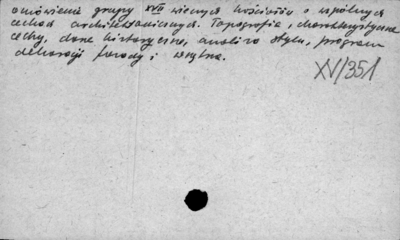 omówienie grupy XVII wiecznych kościołów o wspólnych
cechach architektonicznych. Topografia, charakterystyczne
cechy, dane historyczne, analiza stylu, program
dekoracji fasady i wnętrza.
XV/351